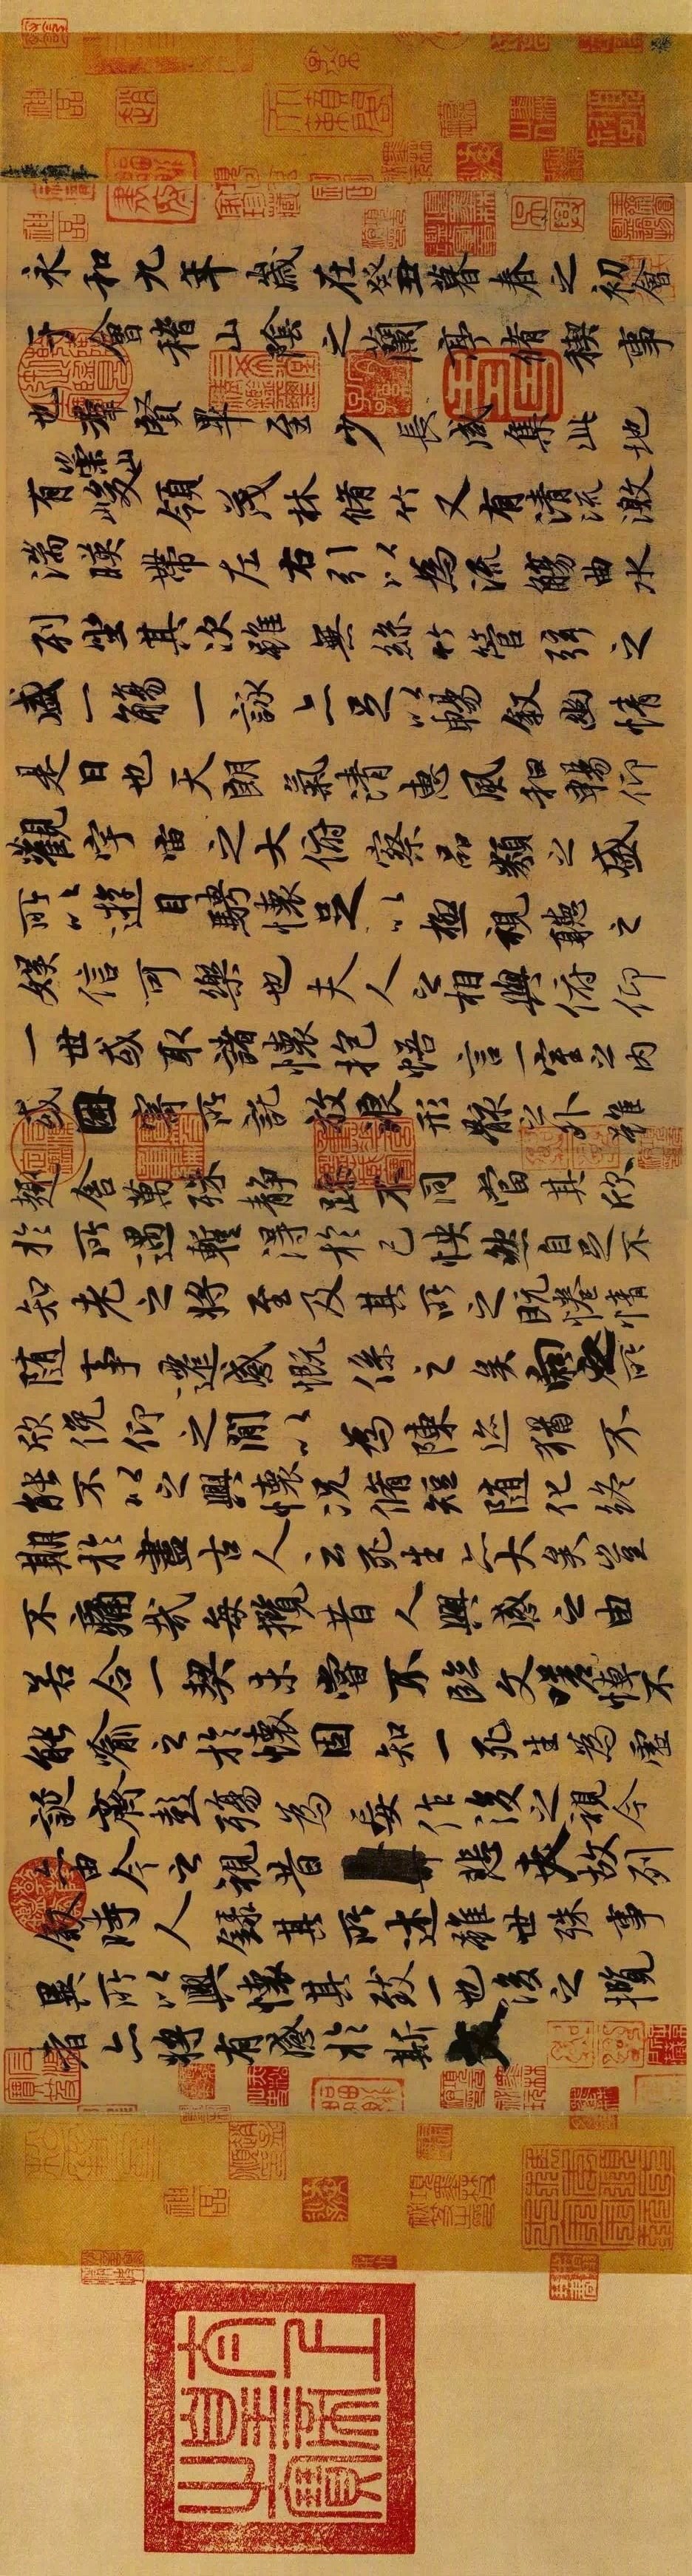 永和九年歲在癸丑暮春之初會
于會稽山陰之蘭亭脩稧事
也羣賢畢至少長咸集此地
有崇山峻領茂林脩竹又有清流激
湍暎帶左右引以為流觴曲水
列坐其次雖無絲竹管弦之
盛一觴一詠亦足以暢叙幽情
是日也天朗氣清惠風和暢仰
觀宇宙之大俯察品類之盛
所以遊目騁懷足以極視聽之
娛信可樂也夫人之相與俯仰
一世或取諸懷抱悟言一室之內
或因寄所託放浪形骸之外雖
趣舍萬殊静躁不同當其欣
於所遇蹔得於己怏然自足不
知老之將至及其所之既惓情
随事遷感慨係之矣向之所
欣俛仰之閒以為陳迹猶不
能不以之興懷況脩短随化終
期於盡古人云死生亦大矣豈
不痛哉每攬昔人興感之由
若合一契未嘗不臨文嗟悼不
能喻之於懷固知一死生為虛
誕齊彭殤為妄作後之視今
亦由今之視昔悲夫故列
叙時人録其所述雖世殊事
異所以興懷其致一也後之攬
者亦將有感於斯文
神品
神品
神品
太上皇帝之寶